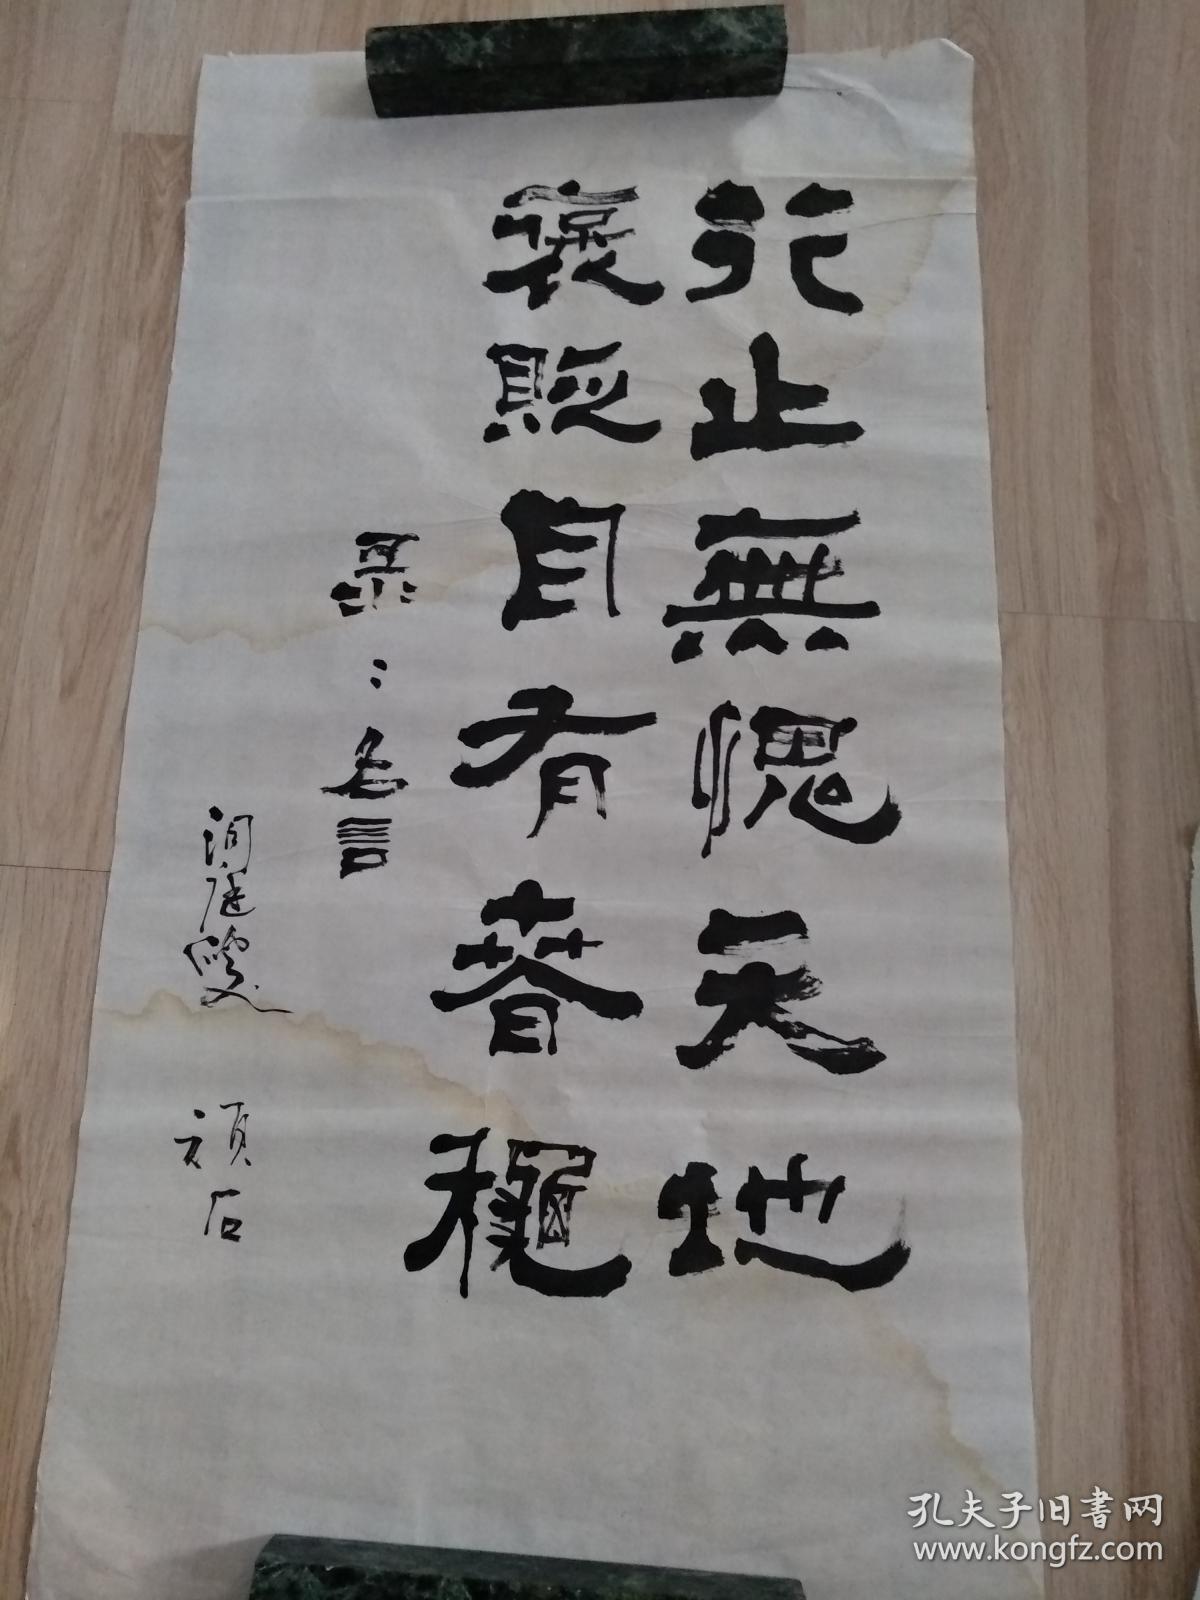 行止無愧天地
褒貶自有春穐
名言
洞庭 頑石
孔夫子旧書网
www.kongfz.com